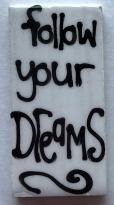 follow
your
DReamS